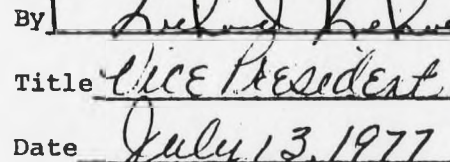 By Richard
Title Vice President
Date July 13, 1977